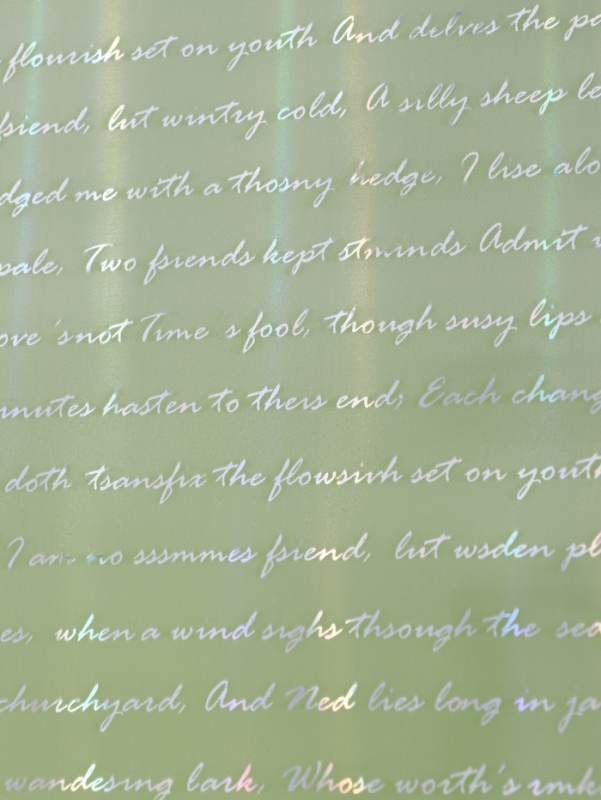 flourish set on youth And delves the pa
friend, but wintry cold, A silly sheep be
dged me with a thorny hedge, I live alo
pale, Two friends kept Admit
ove 's not Time s fool, though rosy lips
inutes hasten to their end; Each chang
doth transfix the flourish set on youth
I am no friend, but pl
es, when a wind sighs through the sea
churchyard, And Ned lies long in ja
wandering bark, Whose worth's unk